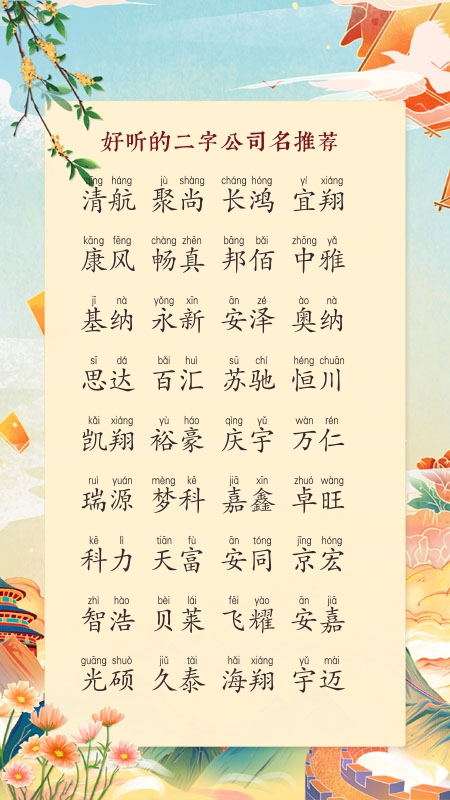 好听的二字公司名推荐
qīng háng jù shàng cháng hóng yí xiáng
清航 聚尚 长鸿 宜翔
kāng fēng chàng zhēn bāng bǎi zhōng yǎ
康风 畅真 邦佰 中雅
jī nà yǒng xīn ān zé ào nà
基纳 永新 安泽 奥纳
sī dá bǎi huì sū chí héng chuān
思达 百汇 苏驰 恒川
kǎi xiáng yù háo qìng yǔ wàn rén
凯翔 裕豪 庆宇 万仁
ruì yuán mèng kē jiā xīn zhuó wàng
瑞源 梦科 嘉鑫 卓旺
kē lì tiān fù ān tóng jīng hóng
科力 天富 安同 京宏
zhì hào bèi lái fēi yào ān jiā
智浩 贝莱 飞耀 安嘉
guāng shuò jiǔ tài hǎi xiáng yǔ mài
光硕 久泰 海翔 宇迈